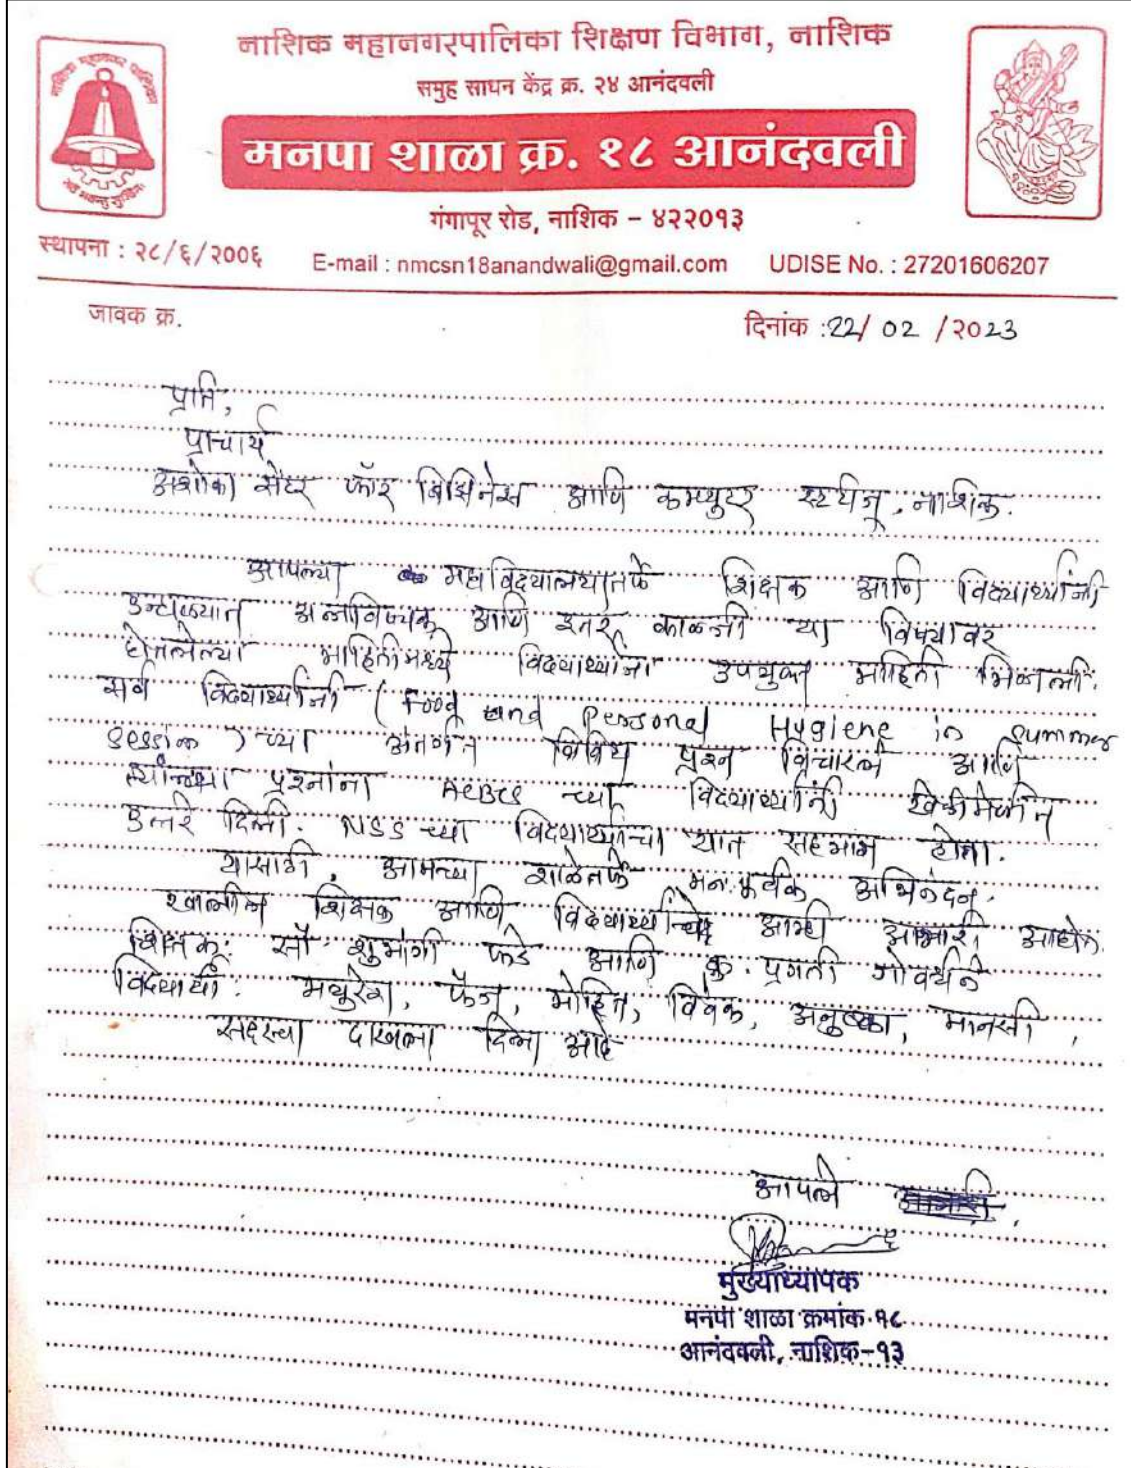 नाशिक महानगरपालिका शिक्षण विभाग, नाशिक
समुह साधन केंद्र क्र. २४ आनंदवली
मनपा शाळा क्र. १८ आनंदवली
गंगापूर रोड, नाशिक – ४२२०१३
स्थापना : २८/६/२००६ E-mail : nmcsn18anandwali@gmail.com UDISE No. : 27201606207
जावक क्र. दिनांक :22/ 02 /२०23
प्रति,
प्राचार्य
अशोका सेंटर फॉर बिझिनेस आणि कम्प्युटर स्टडीज्, नाशिक.
आपल्या महाविद्यालयातर्फे शिक्षक आणि विद्यार्थ्यांनी
उन्हाळ्यात अन्नविषयक आणि इतर काळजी या विषयावर
घेतलेल्या माहितीमध्ये विद्यार्थ्यांना उपयुक्त माहिती मिळाली.
सर्व विद्यार्थ्यांनी (Food and Personal Hygiene in Summer
) च्या अंतर्गत विविध प्रश्न विचारले आणि
त्यांच्या प्रश्नांना ACBCS च्या विद्यार्थ्यांनी खेळीमेळीत
उत्तरे दिली. NSS च्या विद्यार्थ्यांचा यात सहभाग होता.
यासाठी, आमच्या शाळेतर्फे मनःपूर्वक अभिनंदन.
खालील शिक्षक आणि विद्यार्थ्यांचे आम्ही आभारी आहोत.
शिक्षक: सौ. शुभांगी फडे आणि कु. प्रगती गोवर्धने
विद्यार्थी: मयुरेश, फैज, मोहित, विवेक, अनुष्का, मानसी,
सदरचा दाखला दिला आहे
आपले
मुख्याध्यापक
मनपा शाळा क्रमांक-१८
आनंदवली, नाशिक-१३